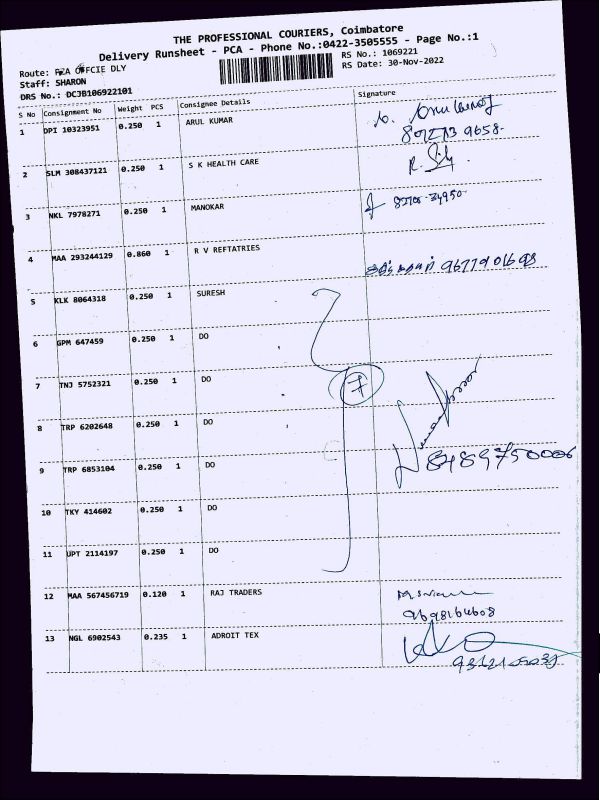 THE PROFESSIONAL COURIERS, Coimbatore
Delivery Runsheet - PCA - Phone No.:0422-3505555 - Page No.:1
Route: PZA OFFCIE DLY
RS No.: 1069221
Staff: SHARON
RS Date: 30-Nov-2022
DRS No.: DCJB106922101
S No Consignment No Weight PCS Consignee Details Signature
1 DPI 10323951 0.250 1 ARUL KUMAR
2 SLM 308437121 0.250 1 S K HEALTH CARE
3 NKL 7978271 0.250 1 MANOKAR
4 MAA 293244129 0.860 1 R V REFTATRIES
5 KLK 8064318 0.250 1 SURESH
6 GPM 647459 0.250 1 DO
7 TNJ 5752321 0.250 1 DO
7
8 TRP 6202648 0.250 1 DO
9 TRP 6853104 0.250 1 DO
8489750006
10 TKY 414602 0.250 1 DO
11 UPT 2114197 0.250 1 DO
12 MAA 567456719 0.120 1 RAJ TRADERS
9698164608
13 NGL 6902543 0.235 1 ADROIT TEX